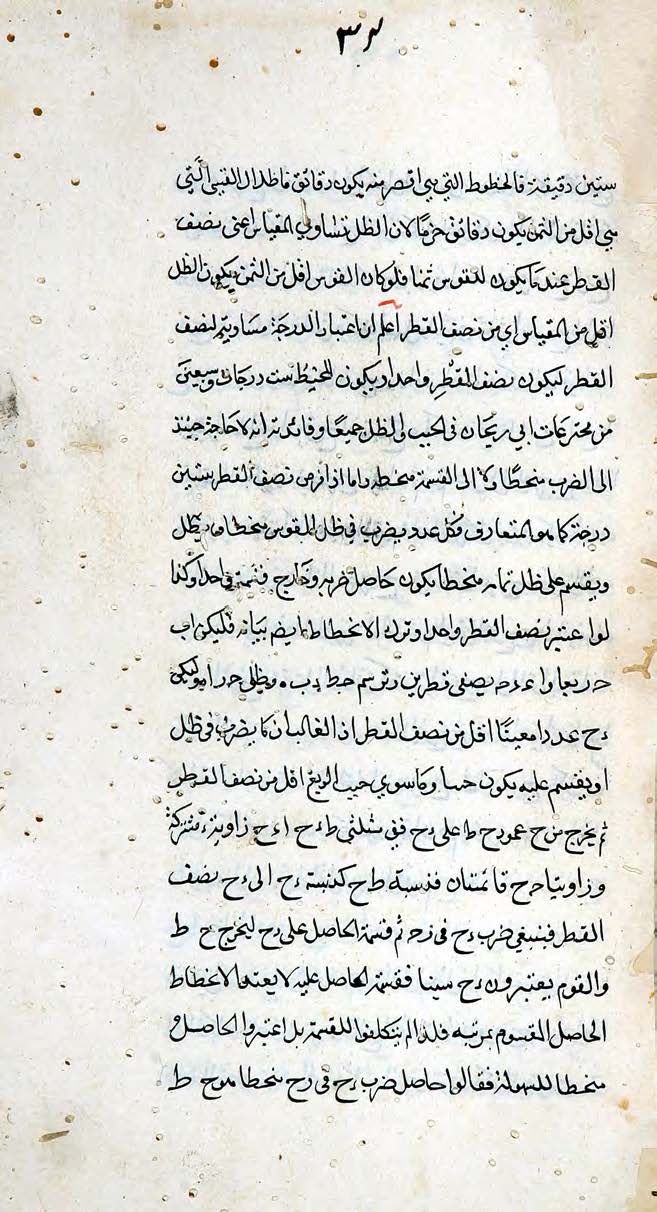 ستين دقيقة فالخطوط التي هي اقصر منه يكون دقائق فاظلال القسي التي
هي اقل من الثمن يكون دقائق جزما لان الظل تساوي المقياس اعني نصف
القطر عند ما يكون للقوس ثمنا فلو كان القوس اقل من الثمن يكون الظل
اقل من المقياس اي من نصف القطر اعلم ان اعتبار الدرجة مساوية لنصف
القطر ليكون نصف القطر واحدا ويكون المحيط ست درجات وسبعين
من مخترعات ابي ريحان في الجيب والظل جميعا وفائدته انه لا حاجة حينئذ
الى الضرب منحطا ولا الى القسمة منحطه واما اذا فرض نصف القطر ستين
درجة كما هو المتعارف فكل عدد يضرب في ظل القوس منحطا
ويقسم على ظل تمامه منحطا يكون حاصل ضربه وخارج قسمته واحدا وكذا
لو اعتبر نصف القطر واحدا وترك الانحطاط بيانه فليكن اب
حـ ربعا و نصفي قطرين ونرسم خط وليكن
ءح عددا معينا اقل من نصف القطر اذ الغالب ان ما يضرب في ظل
او يقسم عليه يكون جيبا وما سوى جيب الربع اقل من نصف القطر
ثم يخرج من ح عمود ح ط على ءح ففي مثلثي طءح زاوية ء مشتركة
وزاويتا قائمتان فنسبة طح كنسبة ءح الى نصف
القطر فينبغي ضرب ءح في ثم قسمة الحاصل على ليخرج ح ط
والقوم يعتبرون ستينا فقسمة الحاصل عليه لا يعتد الا انحطاط
الحاصل المقسوم بمرتبه فلذا لم يتكلفوا للقسمة بل اعتبروا الحاصل
منحطا للسهولة فقالوا حاصل ضرب ءح في منحطا هو ح ط